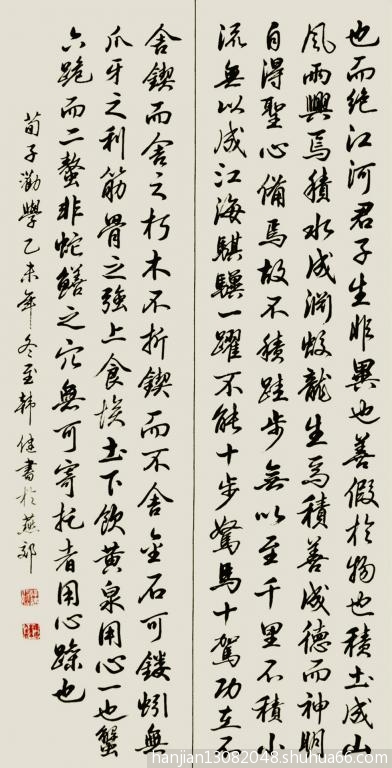 也而絶江河君子生非異也善假於物也積土成山
風雨興焉積水成淵蛟龍生焉積善成德而神明
自得聖心備焉故不積跬步無以至千里不積小
流無以成江海騏驥一躍不能十步駑馬十駕功在不
舍鍥而舍之朽木不折鍥而不舍金石可鏤蚓無
爪牙之利筋骨之強上食埃土下飲黃泉用心一也蟹
六跪而二螯非蛇鱔之穴無可寄托者用心躁也
荀子勸學乙未年冬至韓健書於燕郊
hanjian13082048.shuhua66.com